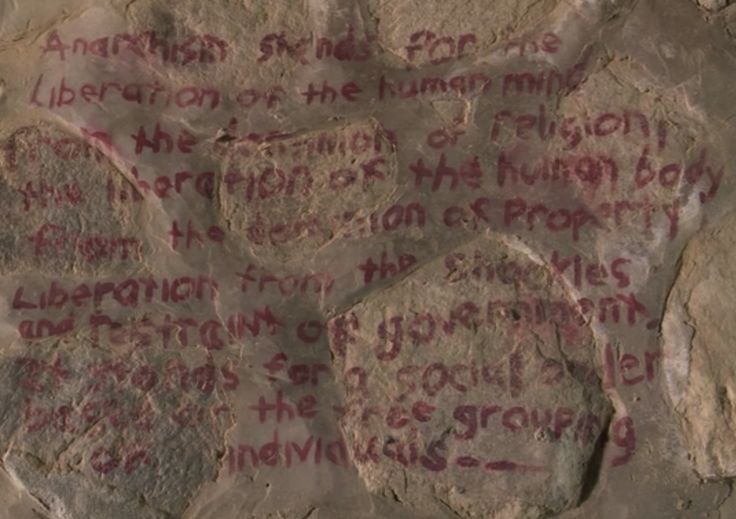 Anarchism stands for the
Liberation of the human mind
from the dominion of religion,
the liberation of the human body
from the dominion of Property,
Liberation from the shackles
and restraint of government.
It stands for a social order
based on the free grouping
of individuals...